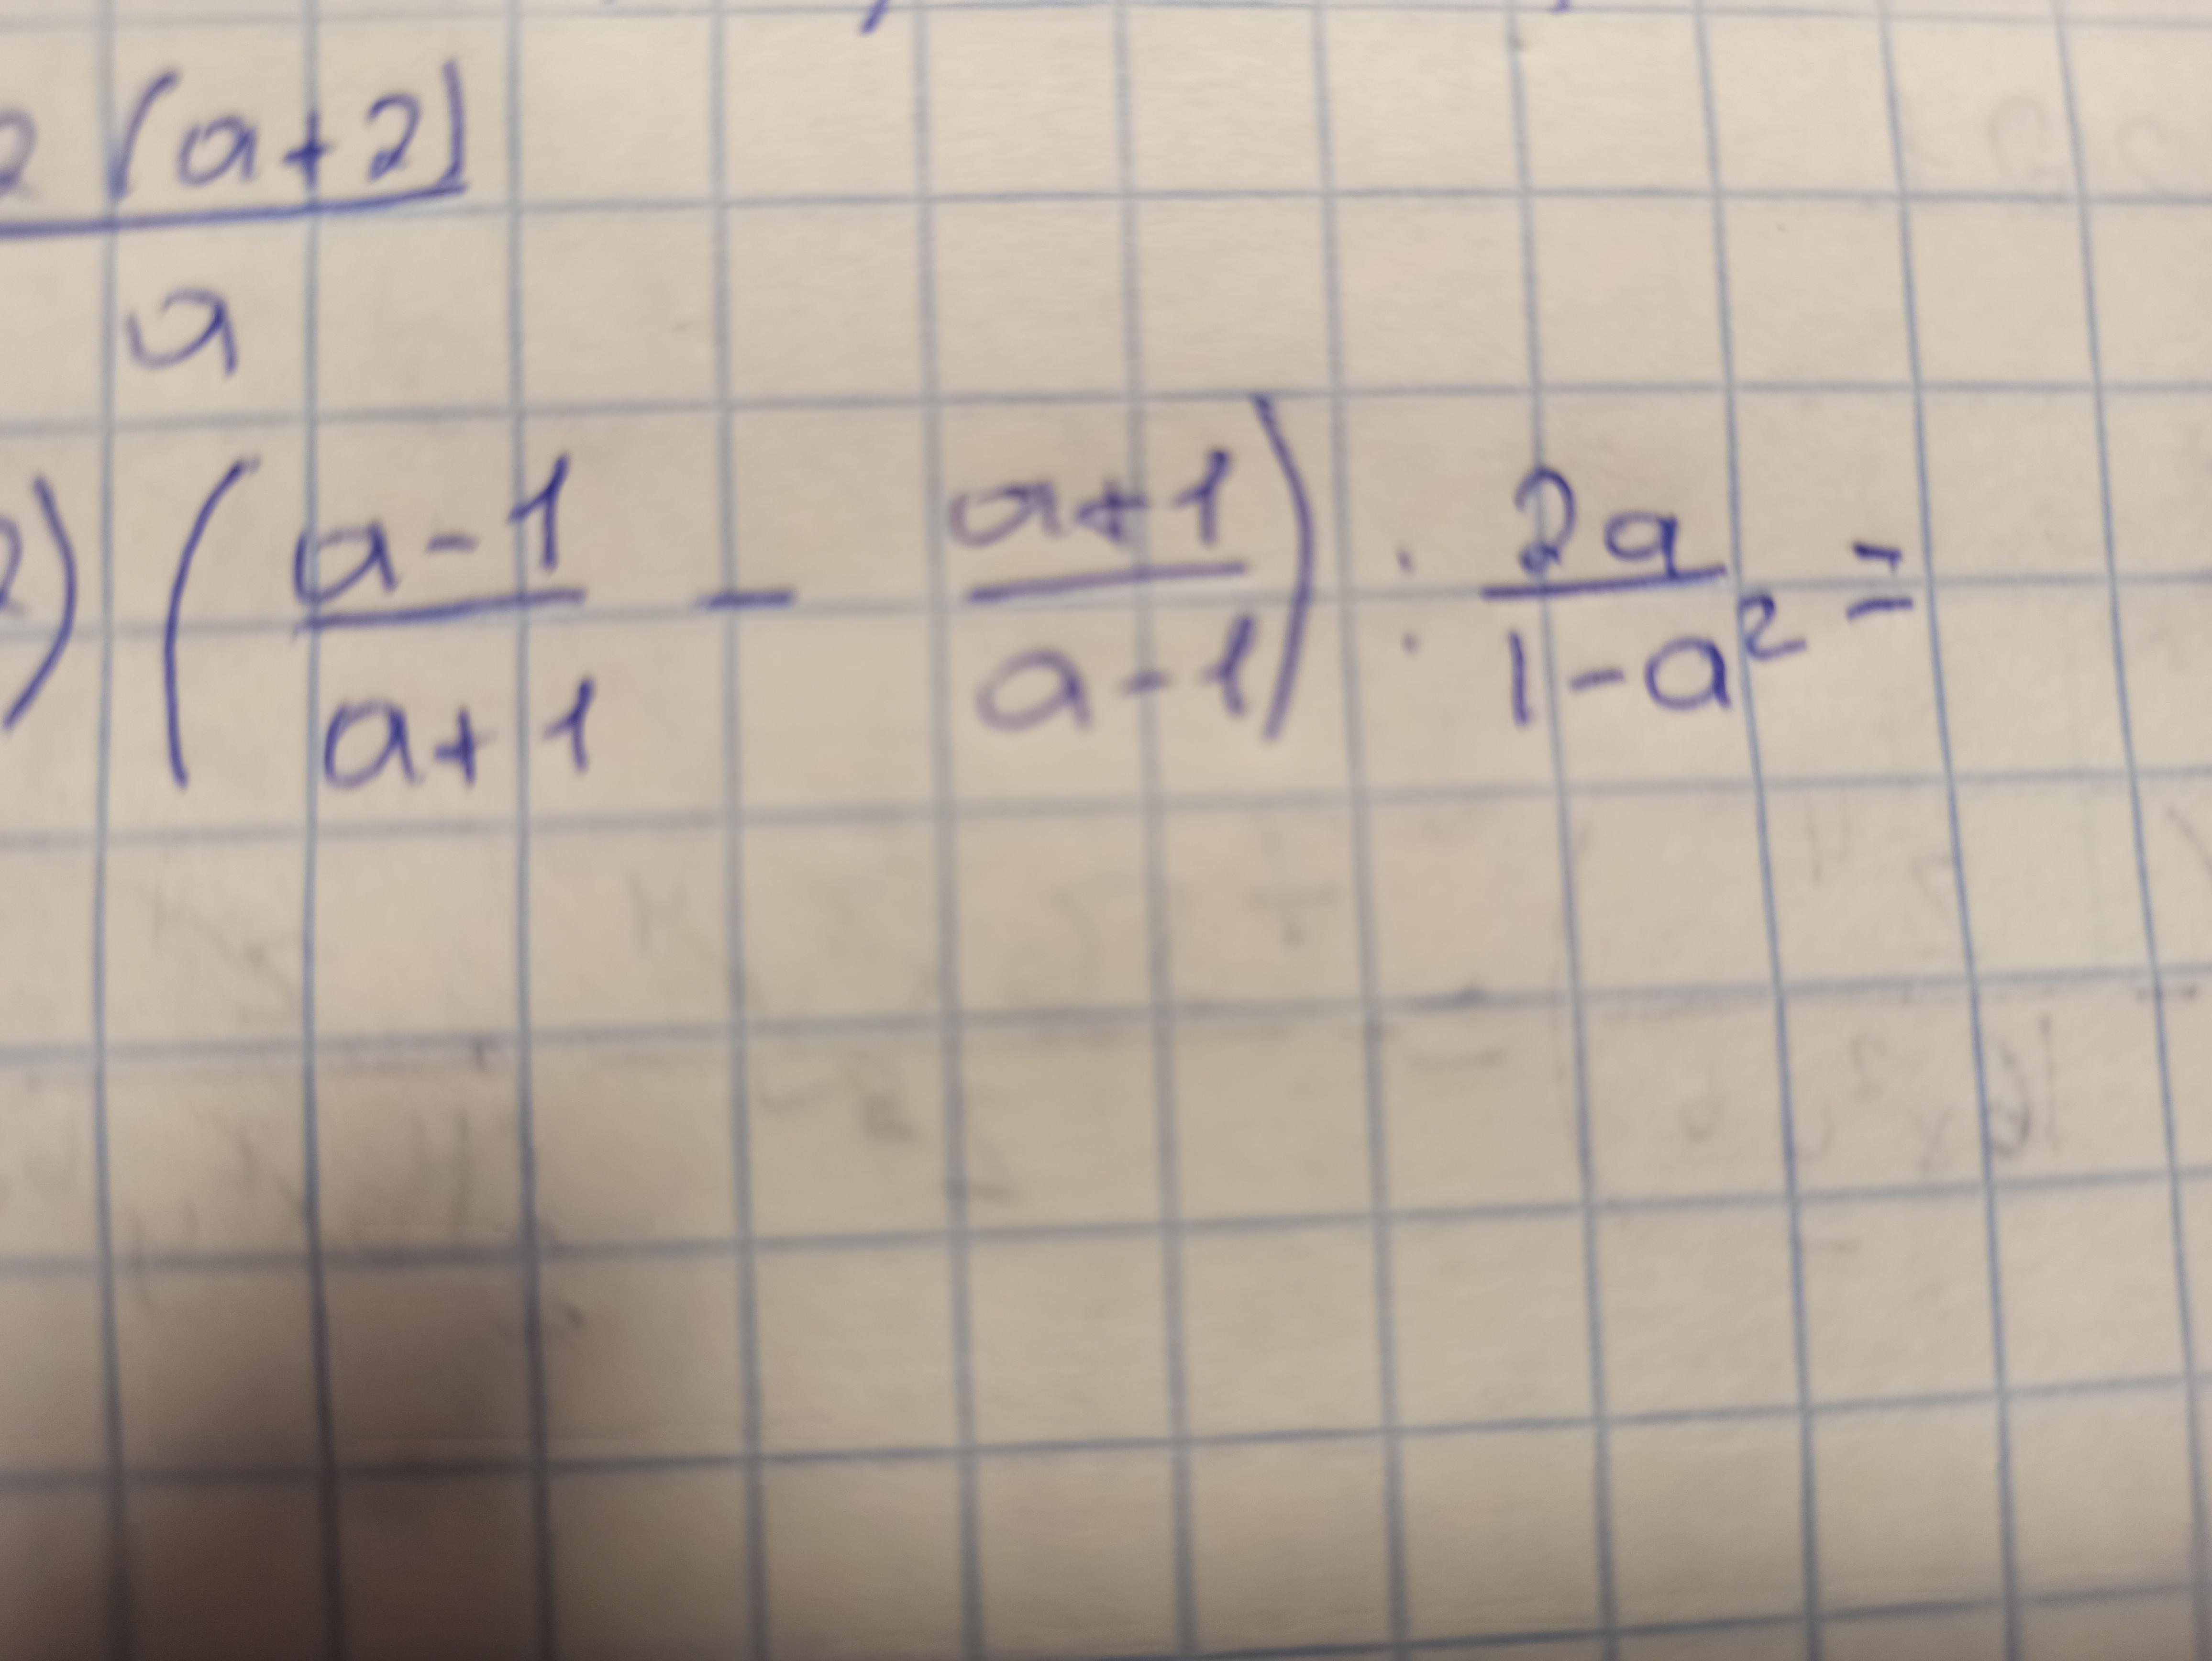 2(a+2)
a
2) ( a-1 / a+1 - a+1 / a-1 ) : 2a / 1-a² =